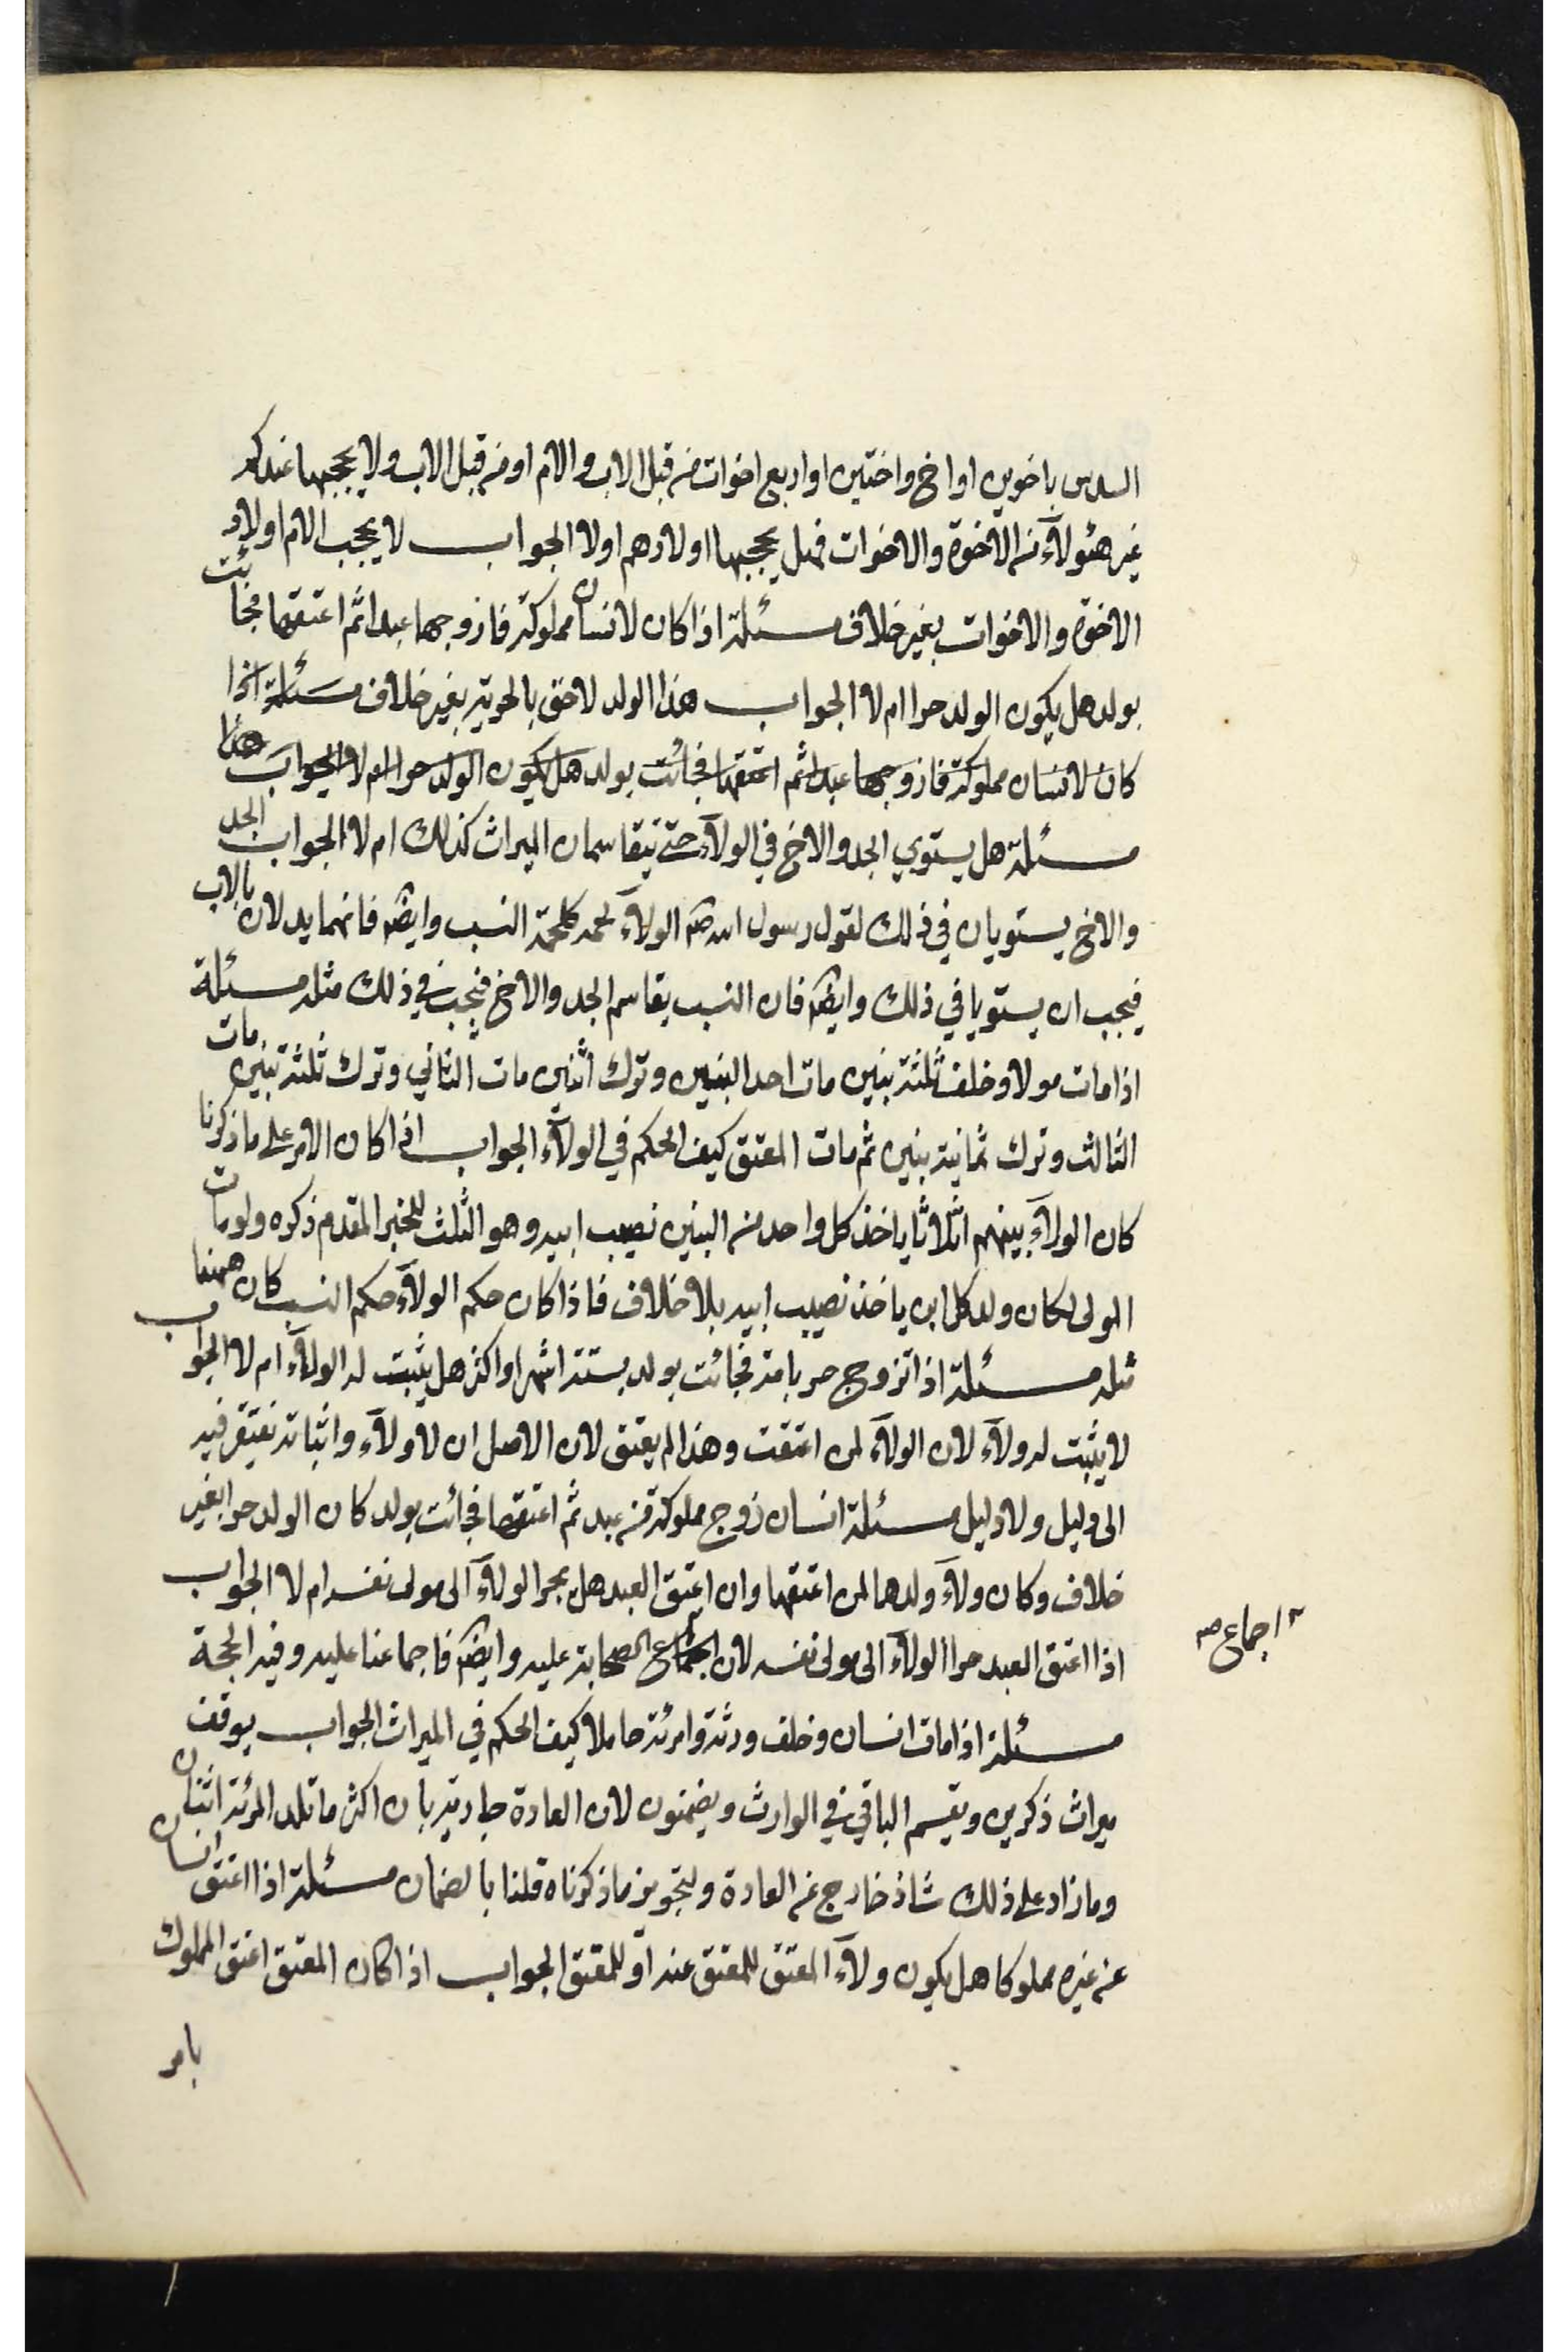 السدس باخوين او اخ واختين او اربع اخوات من قبل الاب والام او من قبل الاب ولا يحجبها عندكم
غير هئولآء من الاخوة والاخوات فهل يحجبها اولادهم اولا الجواب لا يحجب الام اولاد
الاخوة والاخوات بغير خلاف مسئلة اذا كان لانسان مملوكة فازوجها عبدا ثم اعتقها فجائت
بولد هل يكون الولد حرا ام لا الجواب هذا الولد لاحق بالحرية بغير خلاف مسئلة اذا
كان لانسان مملوكة فازوجها عبدا ثم اعتقها فجائت بولد هل يكون الولد حرا ام لا الجواب هذا
مسئلة هل يستوي الجد والاخ في الولآء حتى يتقاسمان الميراث كذلك ام لا الجواب الجد
والاخ يستويان في ذلك لقول رسول الله صم الولآء لحمة كلحمة النسب وايضم فانهما يدلان بالاب
فيجب ان يستويا في ذلك وايضم فان النسب يقاسم الجد والاخ فيجب في ذلك مثله مسئلة
اذا مات مولا وخلف ثلثة بنين مات احد البنين وترك اثنين مات الثاني وترك ثلثة بنين مات
الثالث وترك ثمانية بنين ثم مات المعتق كيف الحكم في الولآء الجواب اذا كان الامر على ما ذكرنا
كان الولآء بينهم اثلاثا ياخذ كل واحد من البنين نصيب ابيه وهو الثلث للخبر المقدم ذكره ولو مات
المولى لكان ولد كل ابن ياخذ نصيب ابيه بلا خلاف فاذا كان حكم الولآء حكم النسب كان ههنا
مثله مسئلة اذا تزوج حر بامة فجائت بولد بستة اشهر او اكثر هل يثبت له الولآء ام لا الجواب
لا يثبت له ولآء لان الولآء لمن اعتقت وهذا لم يعتق لان الاصل ان لا ولآء واثباته نفتقر فيه
الى دليل ولا دليل مسئلة انسان زوج مملوكة من عبد ثم اعتقها فجائت بولد كان الولد حرا بغير
خلاف وكان ولآء ولدها لمن اعتقها وان اعتق العبد هل يجر الولآء الى مولى نفسه ام لا الجواب
اذا اعتق العبد جر الولآء الى مولى نفسه لان اجماع الصحابة عليه وايضم فاجماعنا عليه وفيه الحجة
اجماع صه
مسئلة اذا مات انسان وخلف ورثة وامرئة حاملا كيف الحكم في الميراث الجواب يوقف
ميراث ذكرين ويقسم الباقي في الوارث ويضمنون لان العادة جارية بان اكثر ما تلد المرئة اثنان
وما زاد على ذلك شاذ خارج عن العادة ولتجويز ما ذكرناه قلنا بالضمان مسئلة اذا اعتق انسان
عن غيره مملوكا هل يكون ولآء المعتق للمعتق عنه او للمعتق الجواب اذا كان المعتق اعتق المملوك
بامر